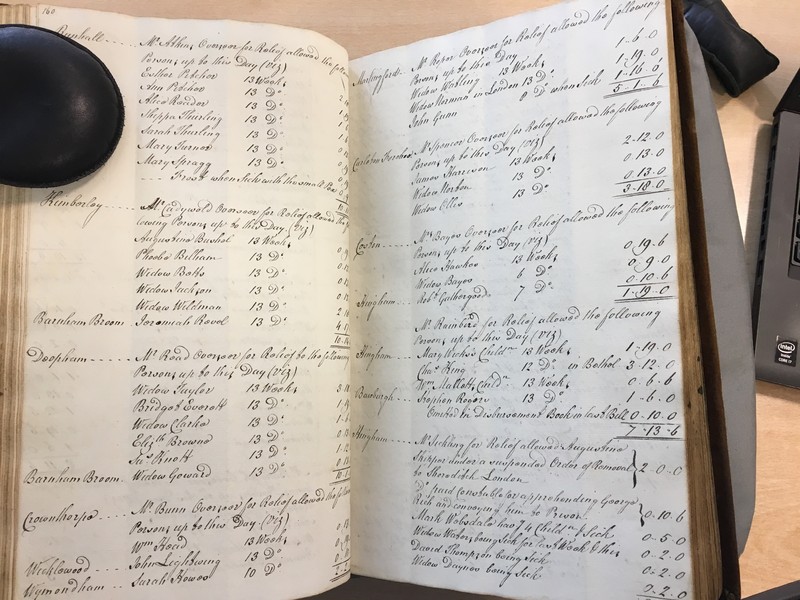 160
Runhall - - - - Mr. Atkins Overseer for Relief allowed the follow
Persons up to this Day (Viz)
Esther Pitcher 13 Weeks
Ann Pitcher 13 Do.
Alice Rander 13 Do.
Skippa Thurling 13 Do.
Sarah Thurling 13 Do.
Mary Turner 13 Do.
Mary Spragg 13 Do.
Frost when Sick with the small Pox
Kimberley - - - Overseer for Relief allowed the
lowing Persons up to this Day (Viz)
Augustine Bushel 13 Weeks
Phoebe Belham 13 Do.
Widow Botts 13 Do.
Widow Jackson 13 Do.
Widow Wildman 13 Do.
Barnham Broom Jeremiah Revel 13 Do.
Deopham - - - Mr. Read Overseer for Relief to the following
Persons up to this Day (Viz)
Widow Taylor 13 Weeks
Bridget Everett 13 Do.
Widow Clarke 13 Do.
Elizth. Browne 13 Do.
Jas. Knott 13 Do.
Barnham Broom Widow Goward 13 Do.
Crownthorpe - - Mr. Bunn Overseer for Relief allowed the follow
Persons up to this Day (Viz)
Wm. Hoid 13 Weeks
Wicklewood - - John Lightwing 13 Do.
Wymondham - - Sarah Howes 10 Do.
Marlingford - - Mr. Roper Overseer for Relief allowed the following
Persons up to this Day
Widow Watling 13 Weeks 1-6-0
Widow Norman in London 13 Do. 1-19-0
John Gunn 8 Do. when Sick 1-16-0
5-1-6
Carleton Forehoe Mr. Spencer Overseer for Relief allowed the following
Persons up to this Day (Viz)
Simon Harrison 13 Weeks 2-12-0
Widow Horton 13 Do. 0-13-0
Widow Ellis 13 Do. 0-13-0
3-18-0
Costen - - - Mr. Bayes Overseer for Relief allowed the following
Persons up to this Day (Viz)
Alice Hawkes 13 Weeks 0-19-6
Widow Bayes 6 Do. 0-9-0
Hingham - - - Robt. Gathergood 7 Do. 0-10-6
1-19-0
Mr. Rainbird for Relief allowed the following
Persons up to this Day (Viz)
Hingham - - - Mary Wicks's Childn. 13 Weeks 1-19-0
Chas. King 12 Do. in Bethel 3-12-0
Wm. Mallett Childn. 13 Weeks 0-6-6
Bawburgh - - - Stephen Rogers 13 Do. 1-6-0
Omitted in Disbursement Book in last Bill 0-10-0
7-13-6
Hingham - - - for Relief allowed Augustine
Skipper under a suspended Order of Removal
to Shoreditch London 2-0-0
Do. paid Constable for apprehending George
Rich and conveying him to Prison 0-10-6
Mark Wolsdale have 4 Childn. Sick 0-5-0
Widow Waters being Sick for last Week & this 0-2-0
David Thompson being Sick 0-2-0
Widow Daynes being Sick 0-2-0
intel
CORE i7